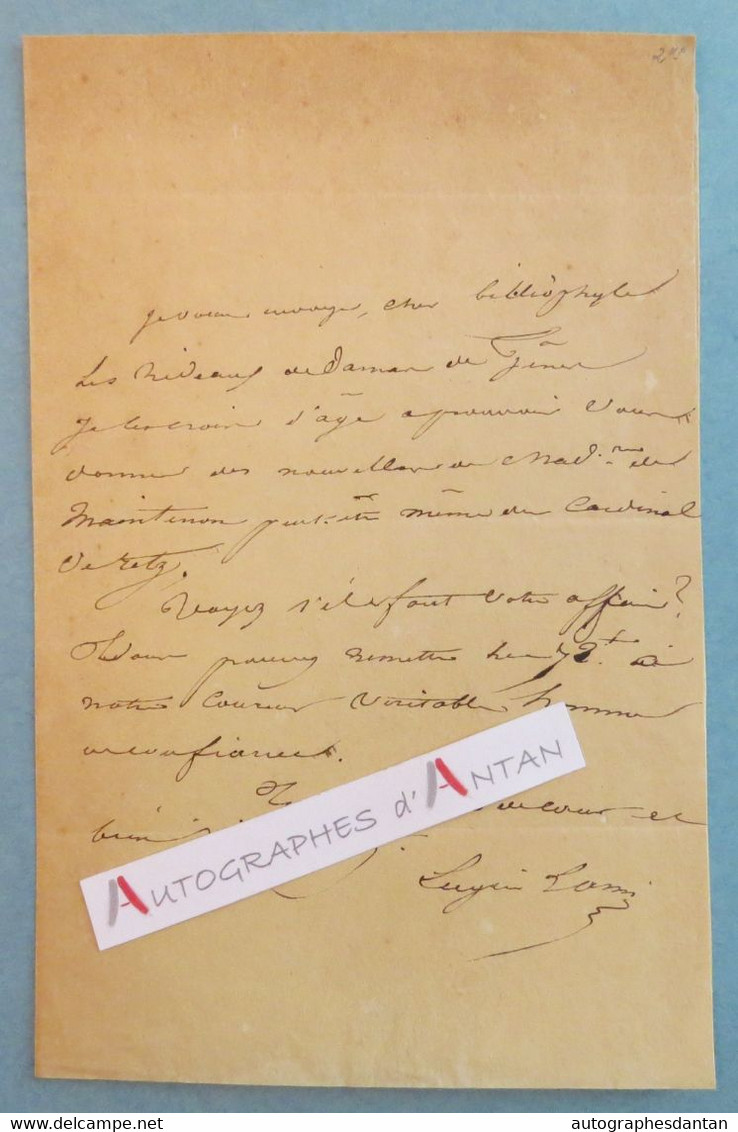 Je vous envoye, cher bibliophyle
Les rideaux de Damas de Gênes
Je les crois d'âge a pouvoir vous
donner des nouvelles de Mad.me de
Maintenon peut-être même du Cardinal
de retz.
Voyez s'il font votre affaire?
Vous pourrez remettre les 72.f à
notre coureur veritable homme
de confiance.
de cœur et
bien
Eugène Lami
AUTOGRAPHES d'ANTAN
delcampe.net
autographesdantan